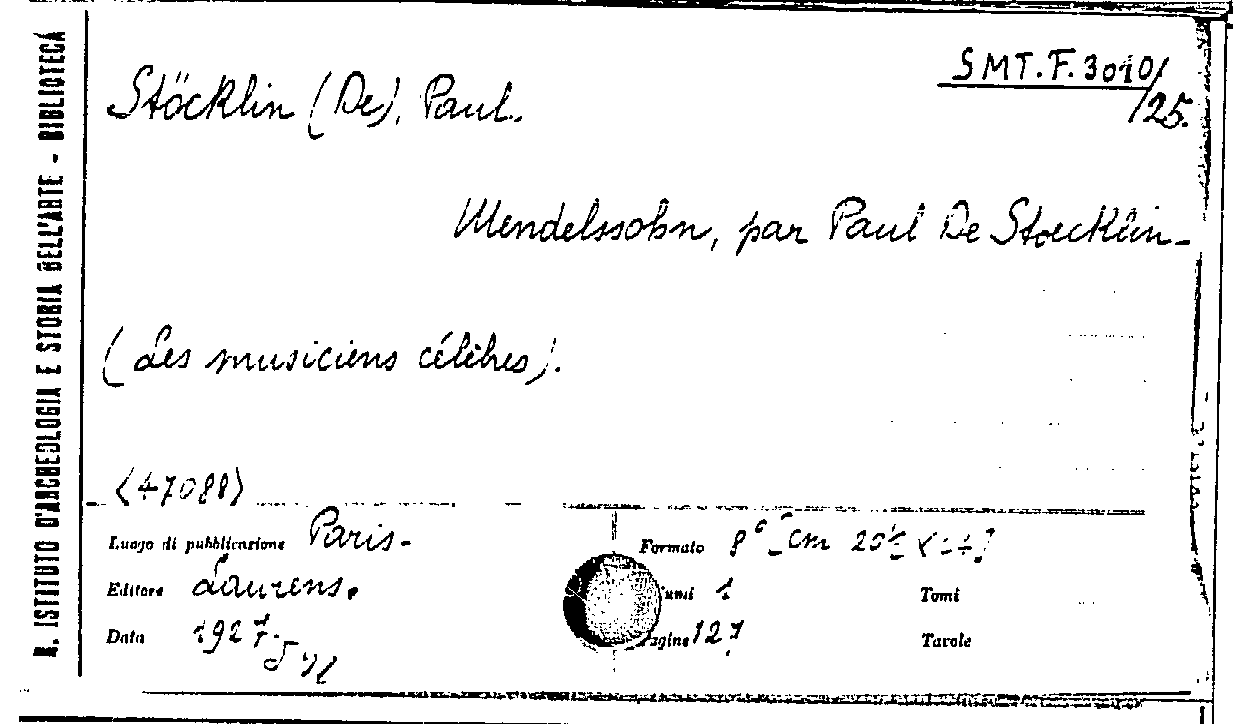 R. ISTITUTO D'ARCHEOLOGIA E STORIA DELL'ARTE - BIBLIOTECA
SMT.F.3010/
/25.
Stöcklin (De), Paul.
Mendelssohn, par Paul De Stoecklin-
(Les musiciens célèbres).
<47088>
Luogo di pubblicazione Paris-
Formato 8° [cm 20½ X 14]
Editore Laurens.
1
Tomi
Data 1927.
Pagine 127
Tavole